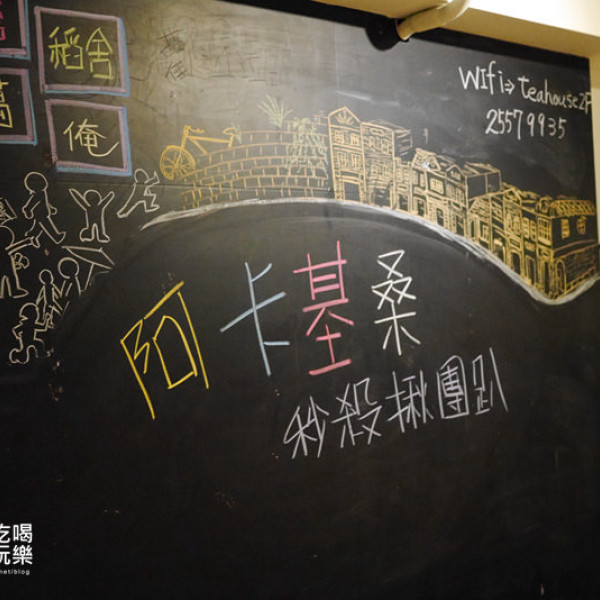 稻舍
俺
WIfi⇒ Teahouse2F
25579935
阿卡基桑
秒殺揪團趴
吃喝
玩樂